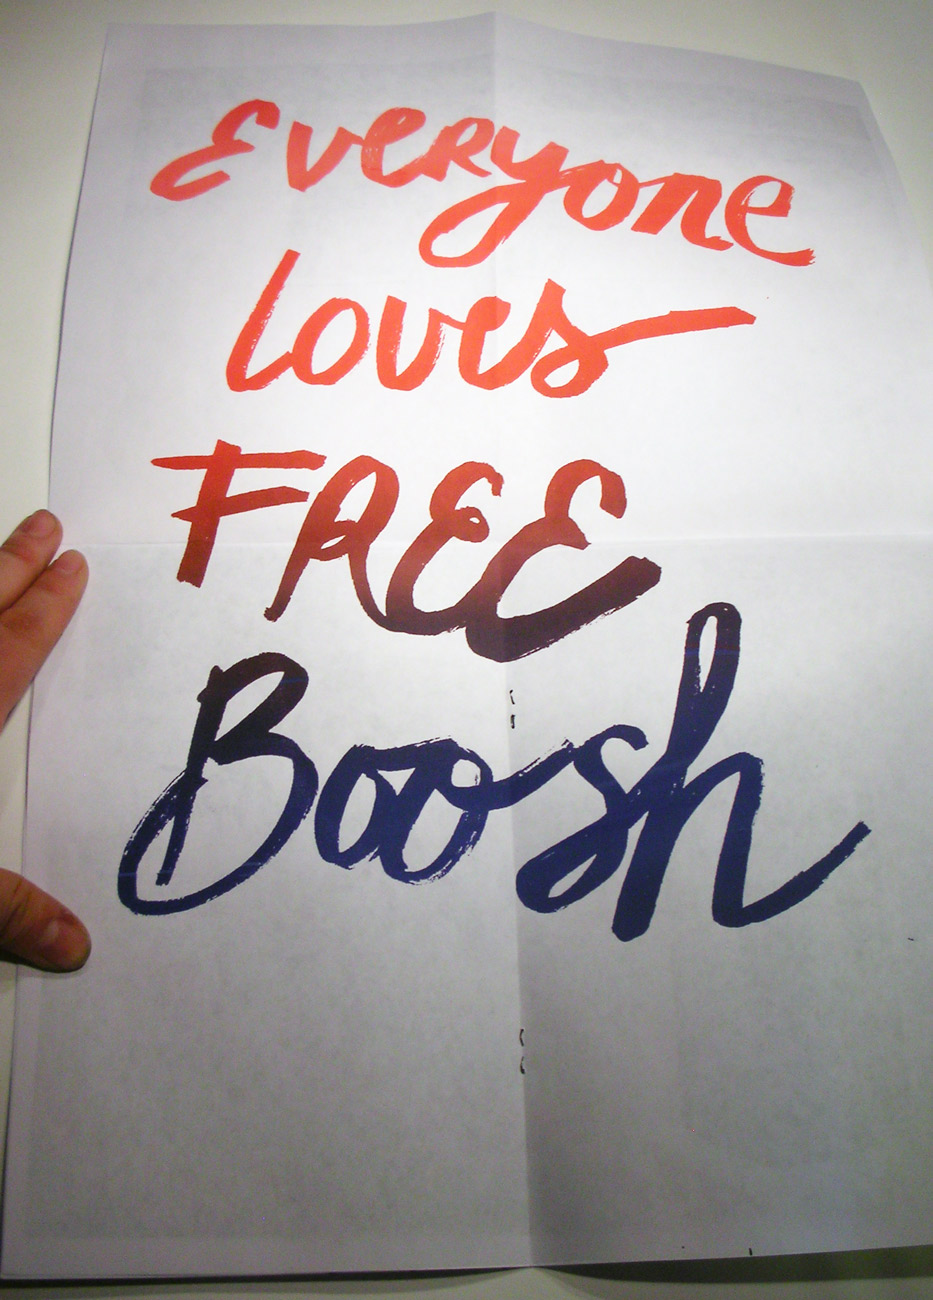 Everyone
loves
FREE
Boosh